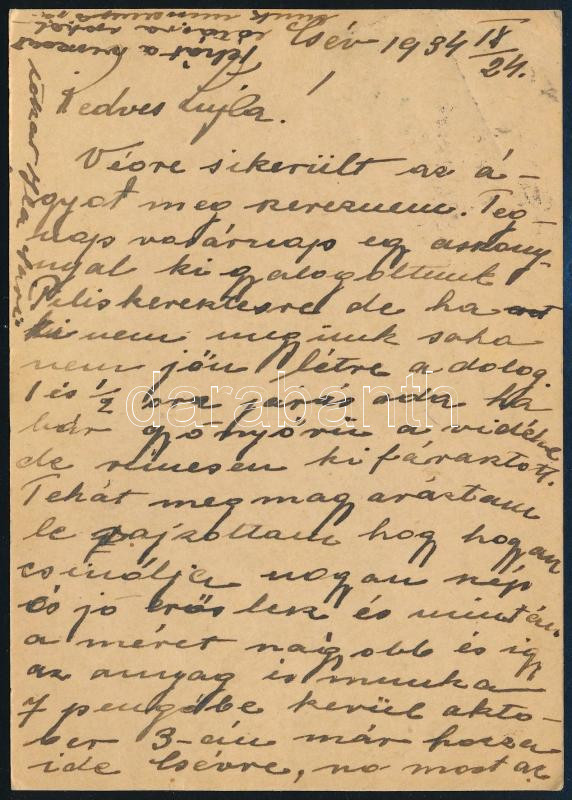 Csév 1934 IX/24.
Kedves Gyula!
Végre sikerült az á-
gyat meg szereznem. Teg-
nap vasárnap egy asszony-
nyal ki gyalogoltunk
Piliskeresztesre de ha
ki nem megyünk soha
nem jön létre a dolog.
1 és 1/2 óra járás oda ha
bár gyönyörű a vidéke
de rémesen kifárasztott.
Tehát megmagyaráztam
le rajzoltam hogy hogyan
csinálja nagyon szép
és jó erős lesz és mintán
a méret nagyobb és így
az anyag is munka
7 pengőbe kerül októ-
ber 3-án már hozza
ide Csévre, no most az
Tehát a
darabanth